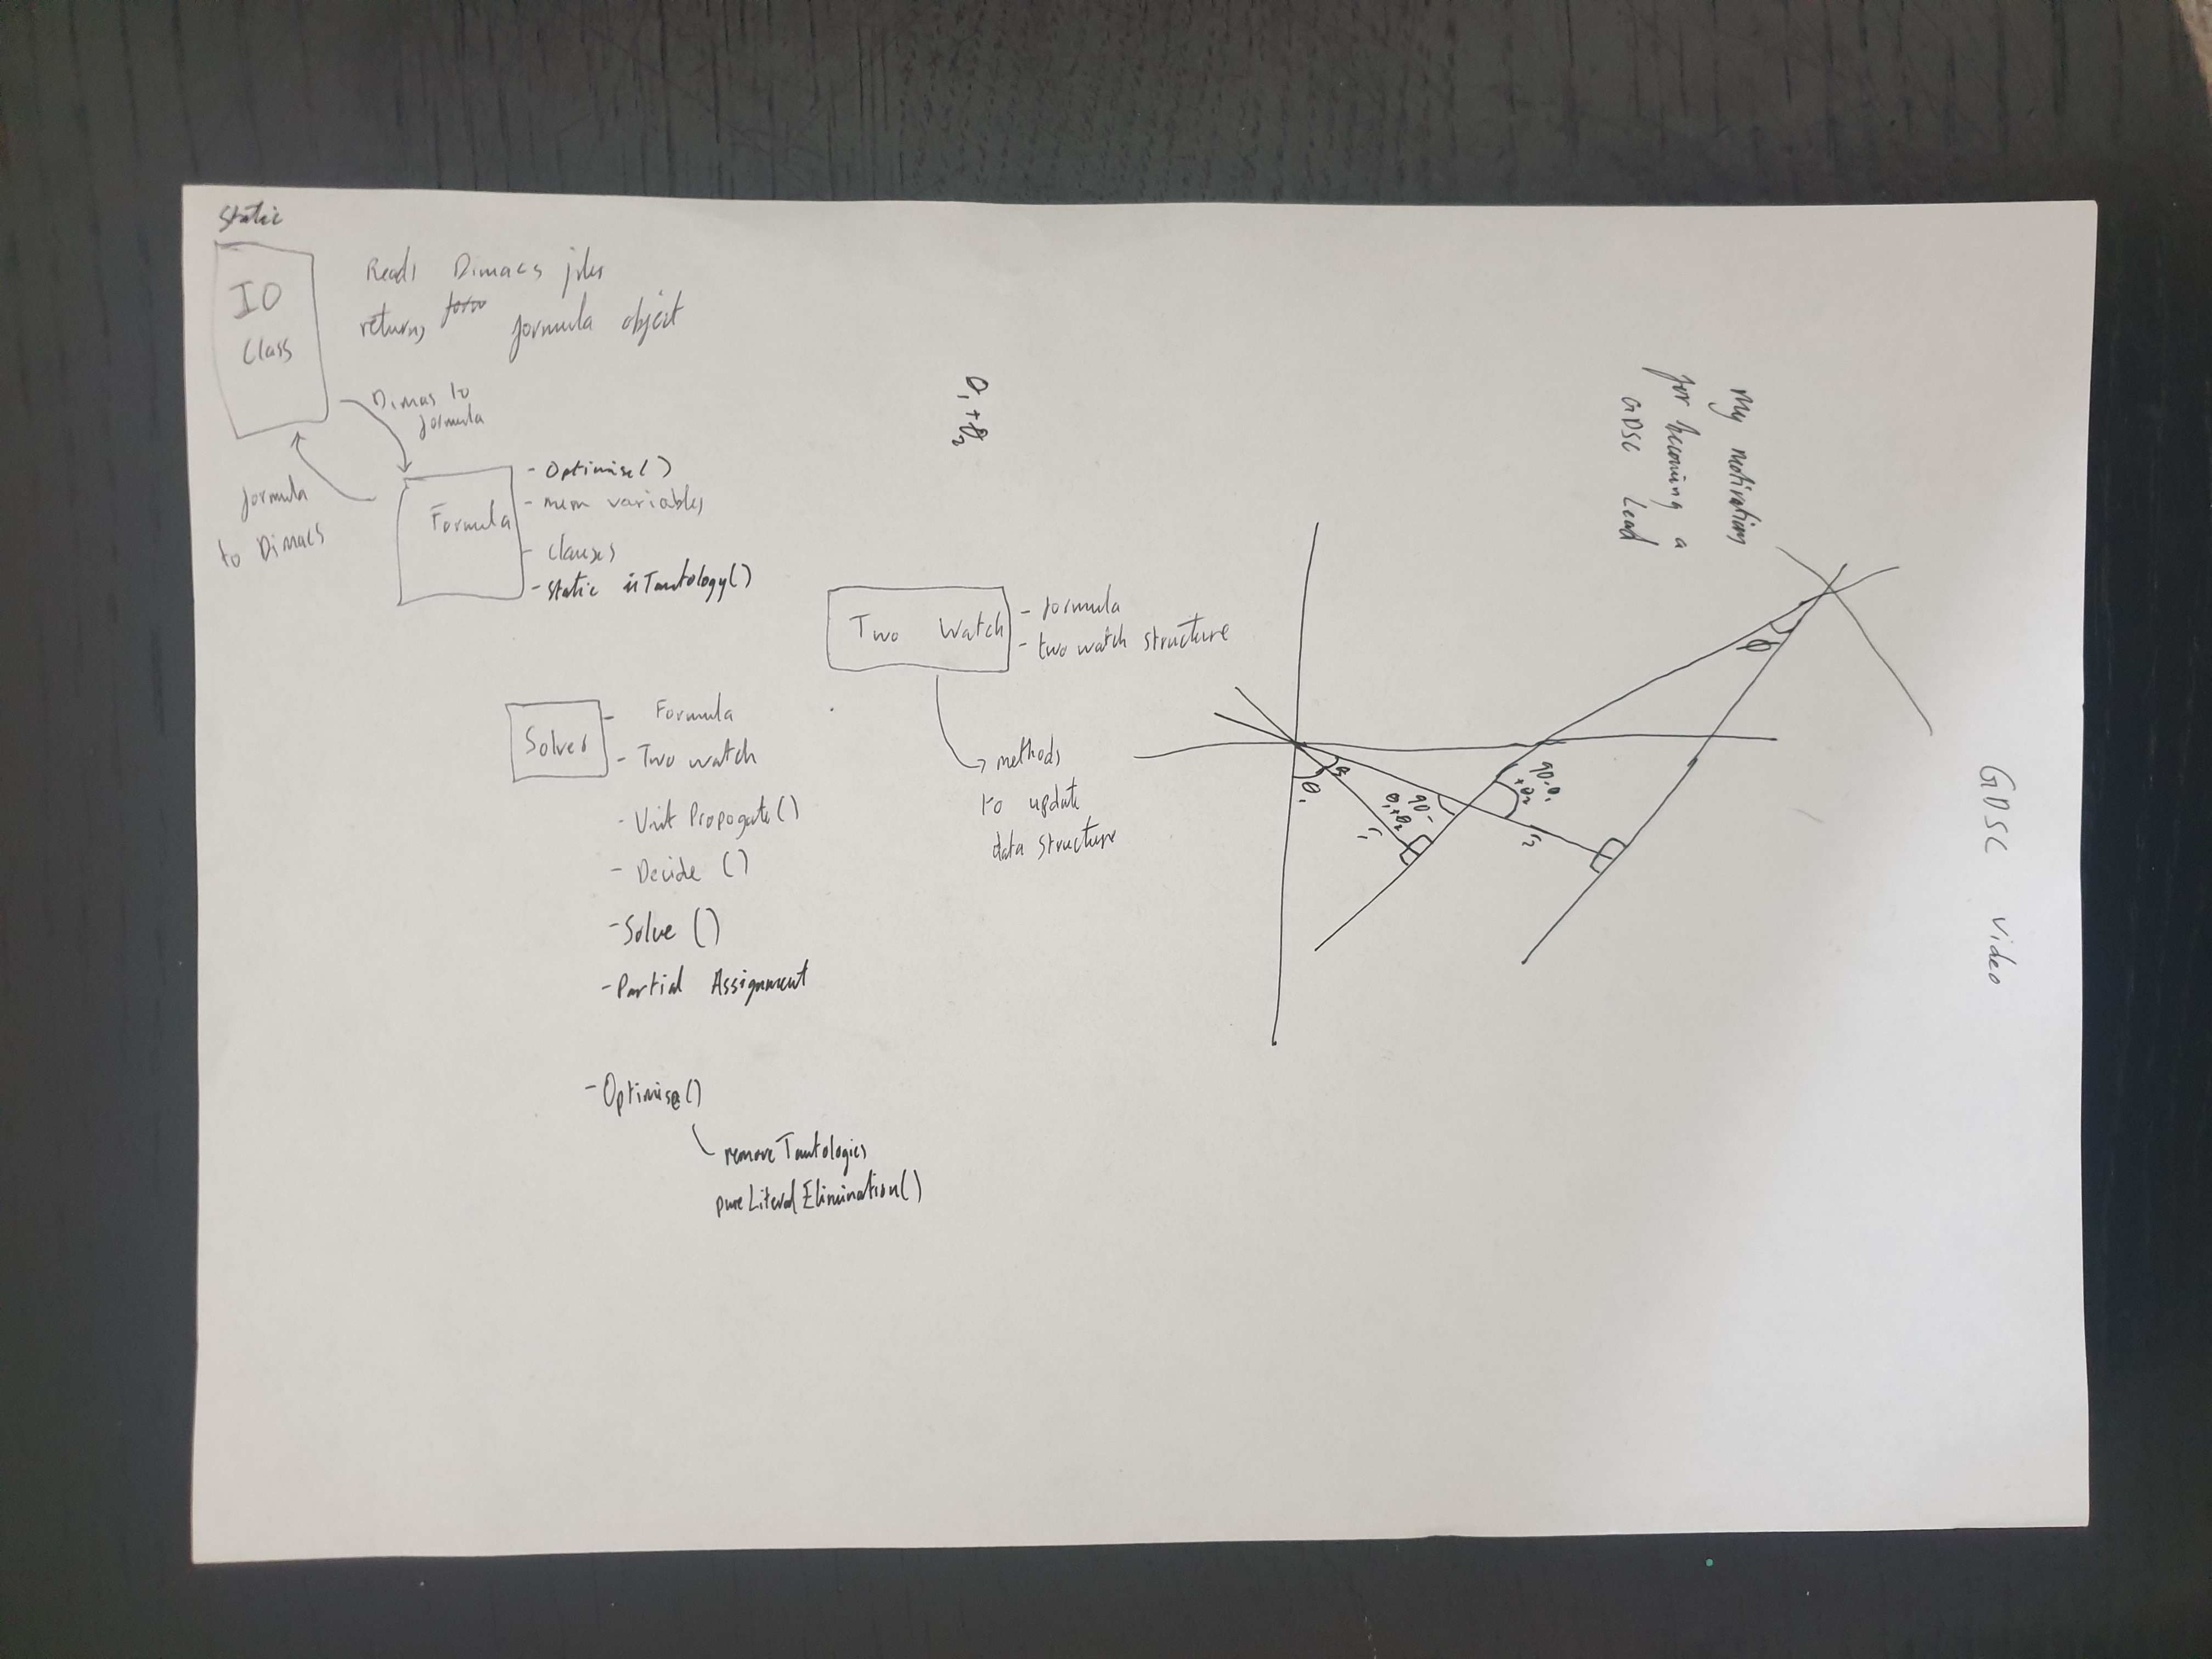 Static
IO
Class
Reads Dimacs files
returns formula object
Dimacs to
formula
formula
to Dimacs
Formula
- Optimise()
- num variables
- clauses
- static isTautology()
Solver
- Formula
- Two watch
- Unit Propogate()
- Decide ()
- Solve ()
- Partial Assignment
- Optimise()
remove Tautologies
pureLiteralElimination()
Two Watch
- formula
- two watch structure
methods
to update
data structure
θ₁+θ₂
θ₁
θ₂
r₁
90-
θ₁+θ₂
r₂
90-θ₁
+θ₂
θ
My motivation
for becoming a
GDSC Lead
GDSC Video